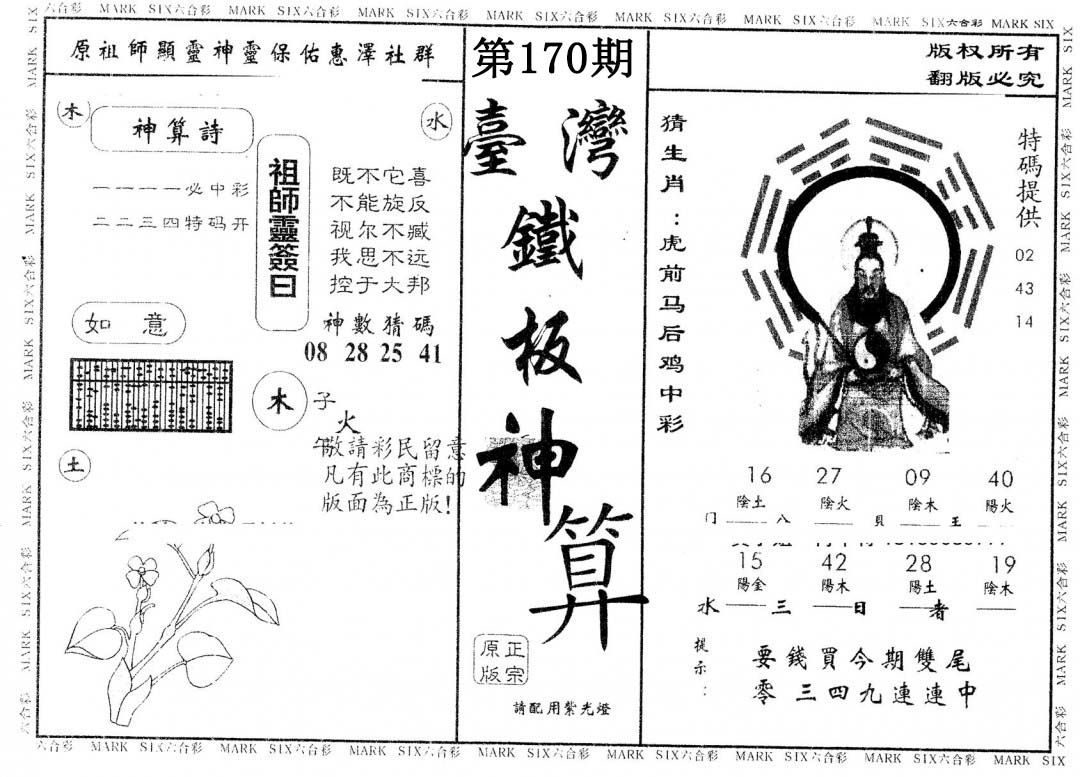 MARK SIX六合彩 MARK SIX六合彩 MARK SIX六合彩 MARK SIX六合彩 MARK SIX六合彩 MARK SIX六合彩 MARK SIX六合彩 MARK SIX
原祖師顯靈神靈保佑惠澤社群
第170期
版权所有
翻版必究
木
神算詩
水
一一一一必中彩
二二三四特码开
祖師靈簽曰
既不它喜
不能旋反
视尔不臧
我思不远
控于大邦
如意
神數猜碼
08 28 25 41
木
子
火
午
敬請彩民留意
凡有此商標的
版面為正版!
土
臺灣
鐵
板
神
算
正宗
原版
請配用紫光燈
猜生肖:虎前马后鸡中彩
特碼提供
02
43
14
16 27 09 40
陰土 陰火 陰木 陽火
门 八 貝 王
15 42 28 19
陽金 陽木 陽土 陰木
水 三 日 者
提示:
要錢買今期雙尾
零三四九連連中
六合彩 MARK SIX六合彩 MARK SIX六合彩 MARK SIX六合彩 MARK SIX六合彩 MARK SIX六合彩 MARK SIX六合彩 MARK SIX六合彩 MARK SIX